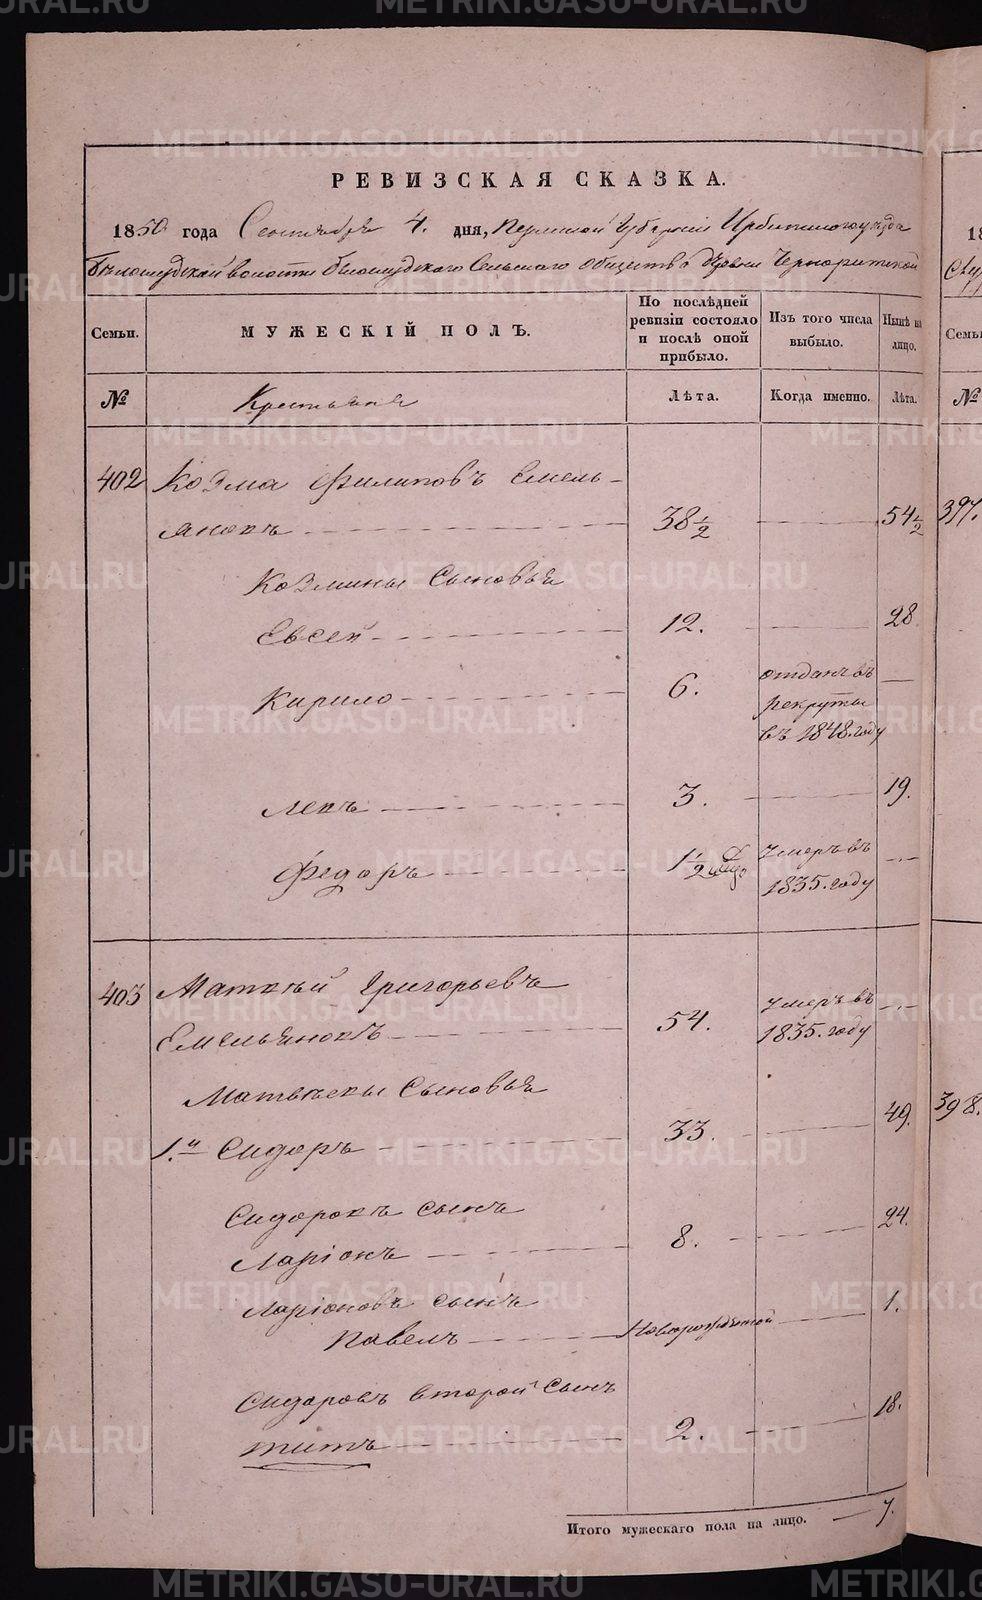 METRIKI.GASO-URAL.RU
РЕВИЗСКАЯ СКАЗКА.
1850 года Сентября 4. дня, Пермской Губернии Ирбитскаго уѣзда
Бѣлослудской волости Белослудскаго Сельскаго Общества деревни
Семьи.
МУЖЕСКІЙ ПОЛЪ.
По послѣдней ревизіи состояло и послѣ оной прибыло.
Изъ того числа выбыло.
Нынѣ на лицо.
№
Крестьяня
Лѣта.
Когда именно.
Лѣта.
402 Козма Филиповъ Емель-
яновъ 38½ 54½
Козмины Сыновья
Евсей 12. 28
Кирило 6. отданъ въ рекруты въ 1848. году
Левъ 3. 19.
Федоръ 1½ Умеръ въ 1835. году
403 Матвѣй Григорьевъ
Емельяновъ 54. Умеръ въ 1835. году
Матвѣевы Сыновья
1.й Сидоръ 33. 49.
Сидоровъ сынъ
Ларіонъ 8. 24.
Ларіоновъ сынъ
Павелъ Новорожденной 1.
Сидоровъ второй сынъ
Титъ 2. 18.
Итого мужескаго пола на лицо. 7.
397.
398.